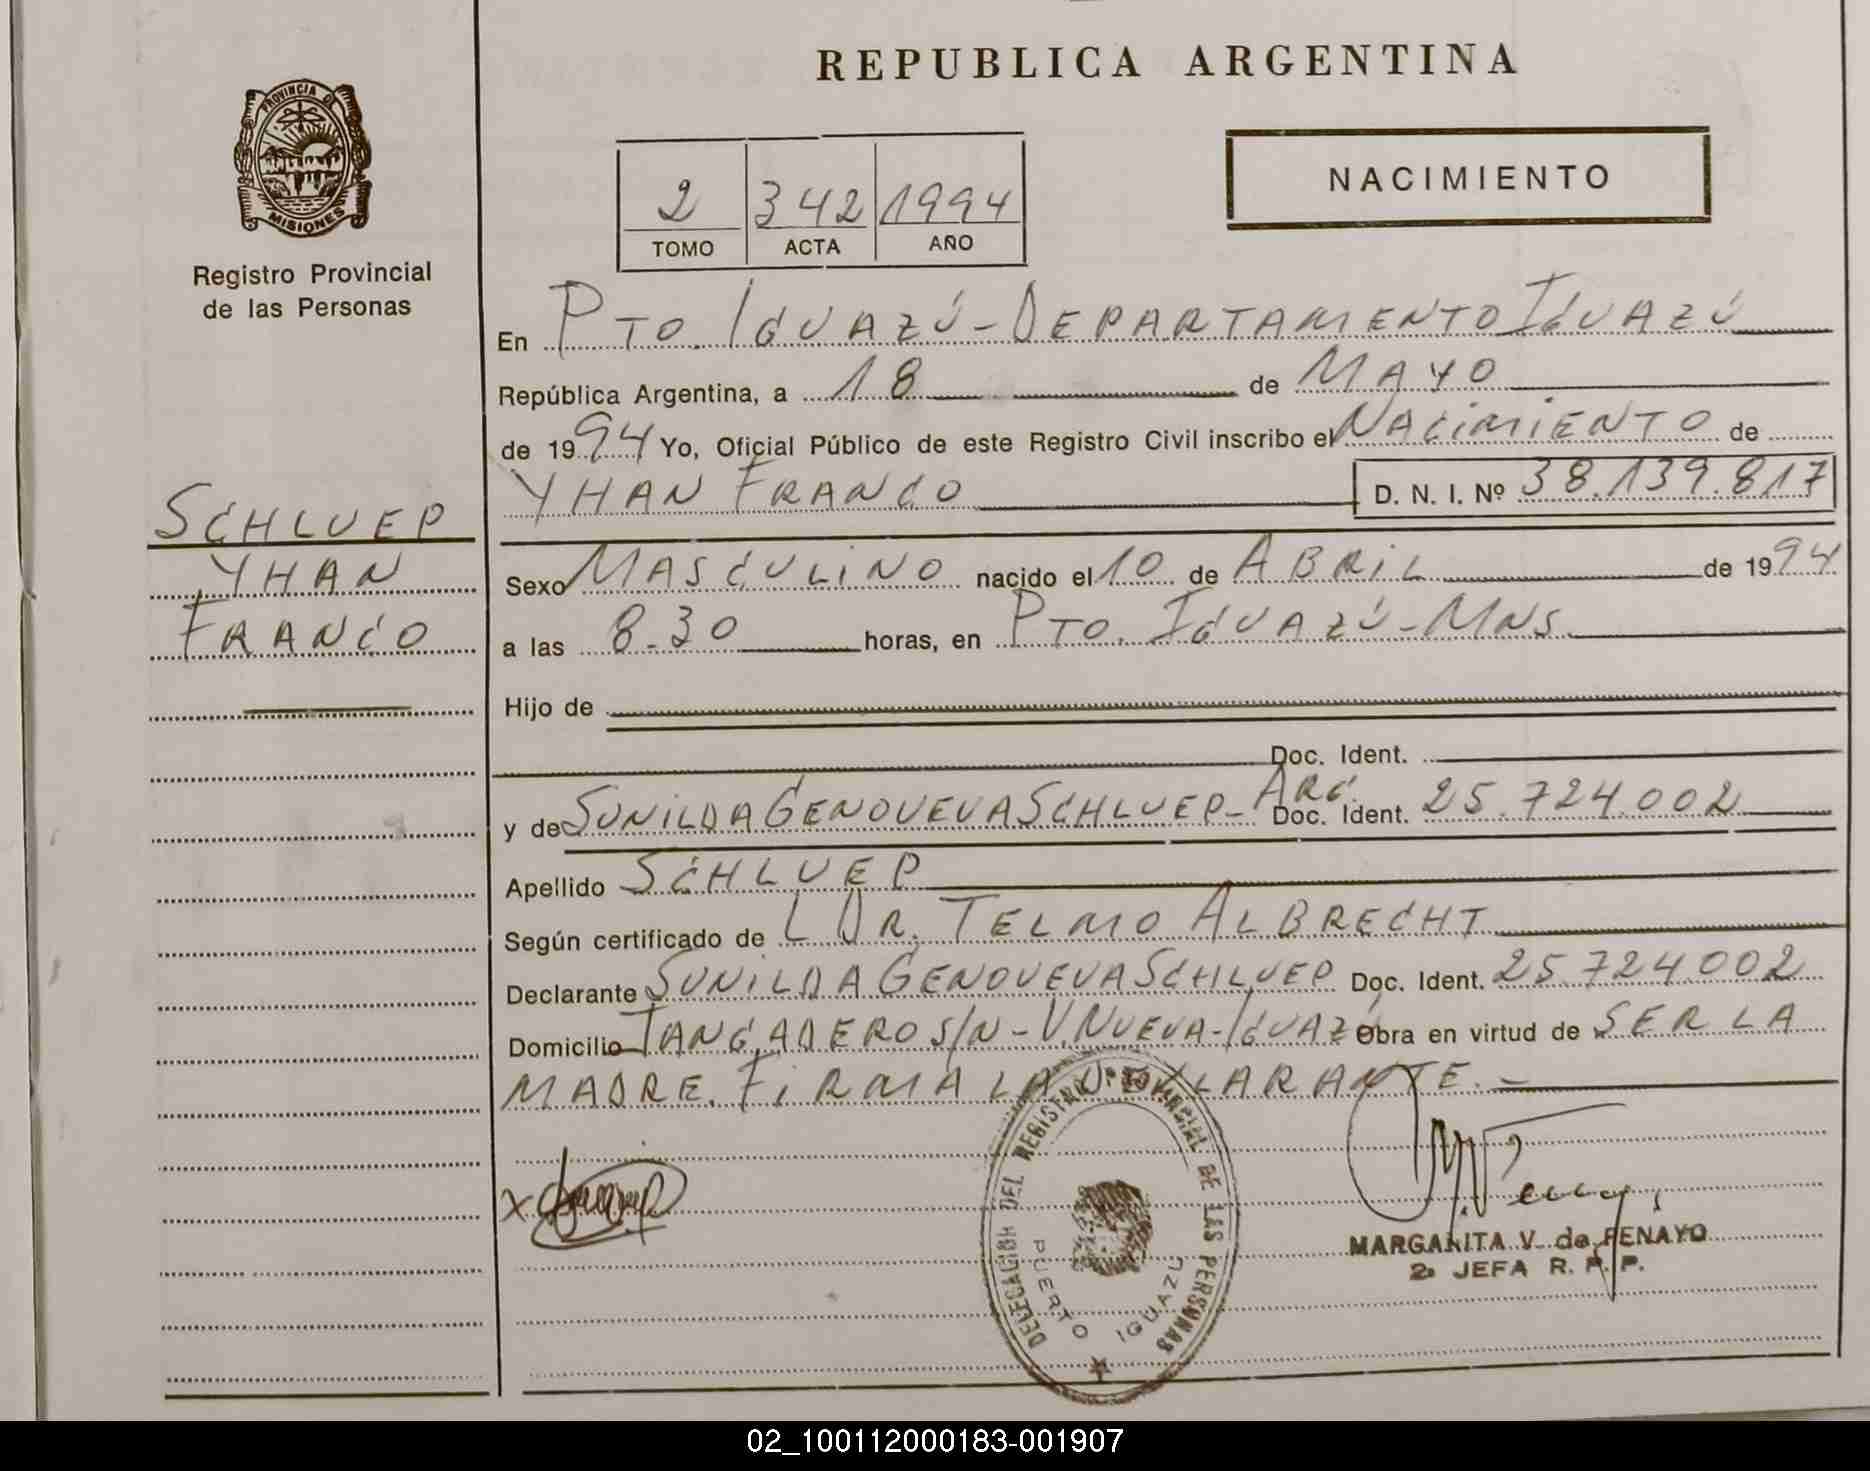 REPUBLICA ARGENTINA
PROVINCIA DE
MISIONES
Registro Provincial
de las Personas
NACIMIENTO
2 342 1994
TOMO ACTA AÑO
En PTO. IGUAZÚ - DEPARTAMENTO IGUAZÚ
República Argentina, a 18 de MAYO
de 1994 Yo, Oficial Público de este Registro Civil inscribo el NACIMIENTO de
YHAN FRANCO D. N. I. Nº 38.139.817
SCHLUEP
YHAN
FRANCO
Sexo MASCULINO nacido el 10 de ABRIL de 1994
a las 8.30 horas, en PTO. IGUAZÚ - MNS.
Hijo de
Doc. Ident.
y de SUNILDA GENOVEVA SCHLUEP - ARG. Doc. Ident. 25.724.002
Apellido SCHLUEP
Según certificado de L DR. TELMO ALBRECHT
Declarante SUNILDA GENOVEVA SCHLUEP Doc. Ident. 25.724.002
Domicilio TANGADERO S/N - V. NUEVA - IGUAZÚ Obra en virtud de SER LA
MADRE. FIRMA LA DECLARANTE. -
DELEGACION DEL REGISTRO PROVINCIAL DE LAS PERSONAS
PUERTO IGUAZU
MARGARITA V. de PENAYO
2a JEFA R. P. P.
02_100112000183-001907